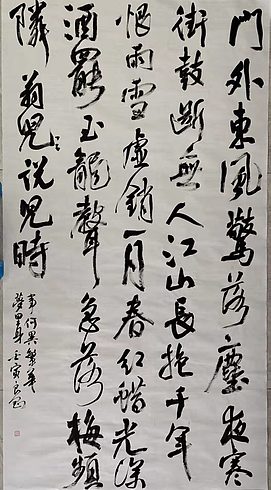 門外東風驚落塵夜寒
街鼓斷無人江山長抱千年
恨雨雪虛銷一月春紅蜡光深
酒罷玉龍聲急落梅頻
隣翁兒說兒時
事何異繁華
夢里身壬寅